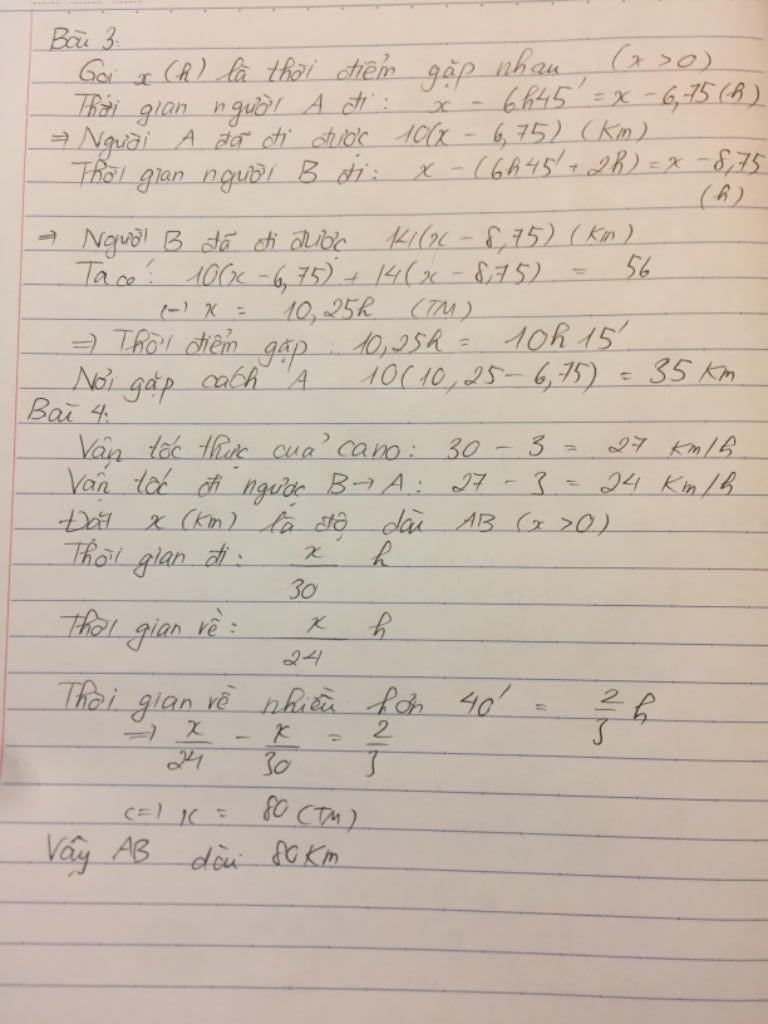 Bài 3:
Gọi x (h) là thời điểm gặp nhau (x > 0)
Thời gian người A đi: x - 6h45' = x - 6,75 (h)
⇒ Người A đã đi được 10(x - 6,75) (Km)
Thời gian người B đi: x - (6h45' + 2h) = x - 8,75
(h)
⇒ Người B đã đi được 14(x - 8,75) (Km)
Ta có: 10(x - 6,75) + 14(x - 8,75) = 56
(=) x = 10,25h (TM)
⇒ Thời điểm gặp: 10,25h = 10h 15'
Nơi gặp cách A 10(10,25 - 6,75) = 35 Km
Bài 4:
Vận tốc thực của cano: 30 - 3 = 27 Km/h
Vận tốc đi ngược B→A: 27 - 3 = 24 Km/h
Đặt x (Km) là độ dài AB (x > 0)
Thời gian đi: x/30 h
Thời gian về: x/24 h
Thời gian về nhiều hơn 40' = 2/3 h
=) x/24 - x/30 = 2/3
(=) x = 80 (TM)
Vậy AB dài 80 Km